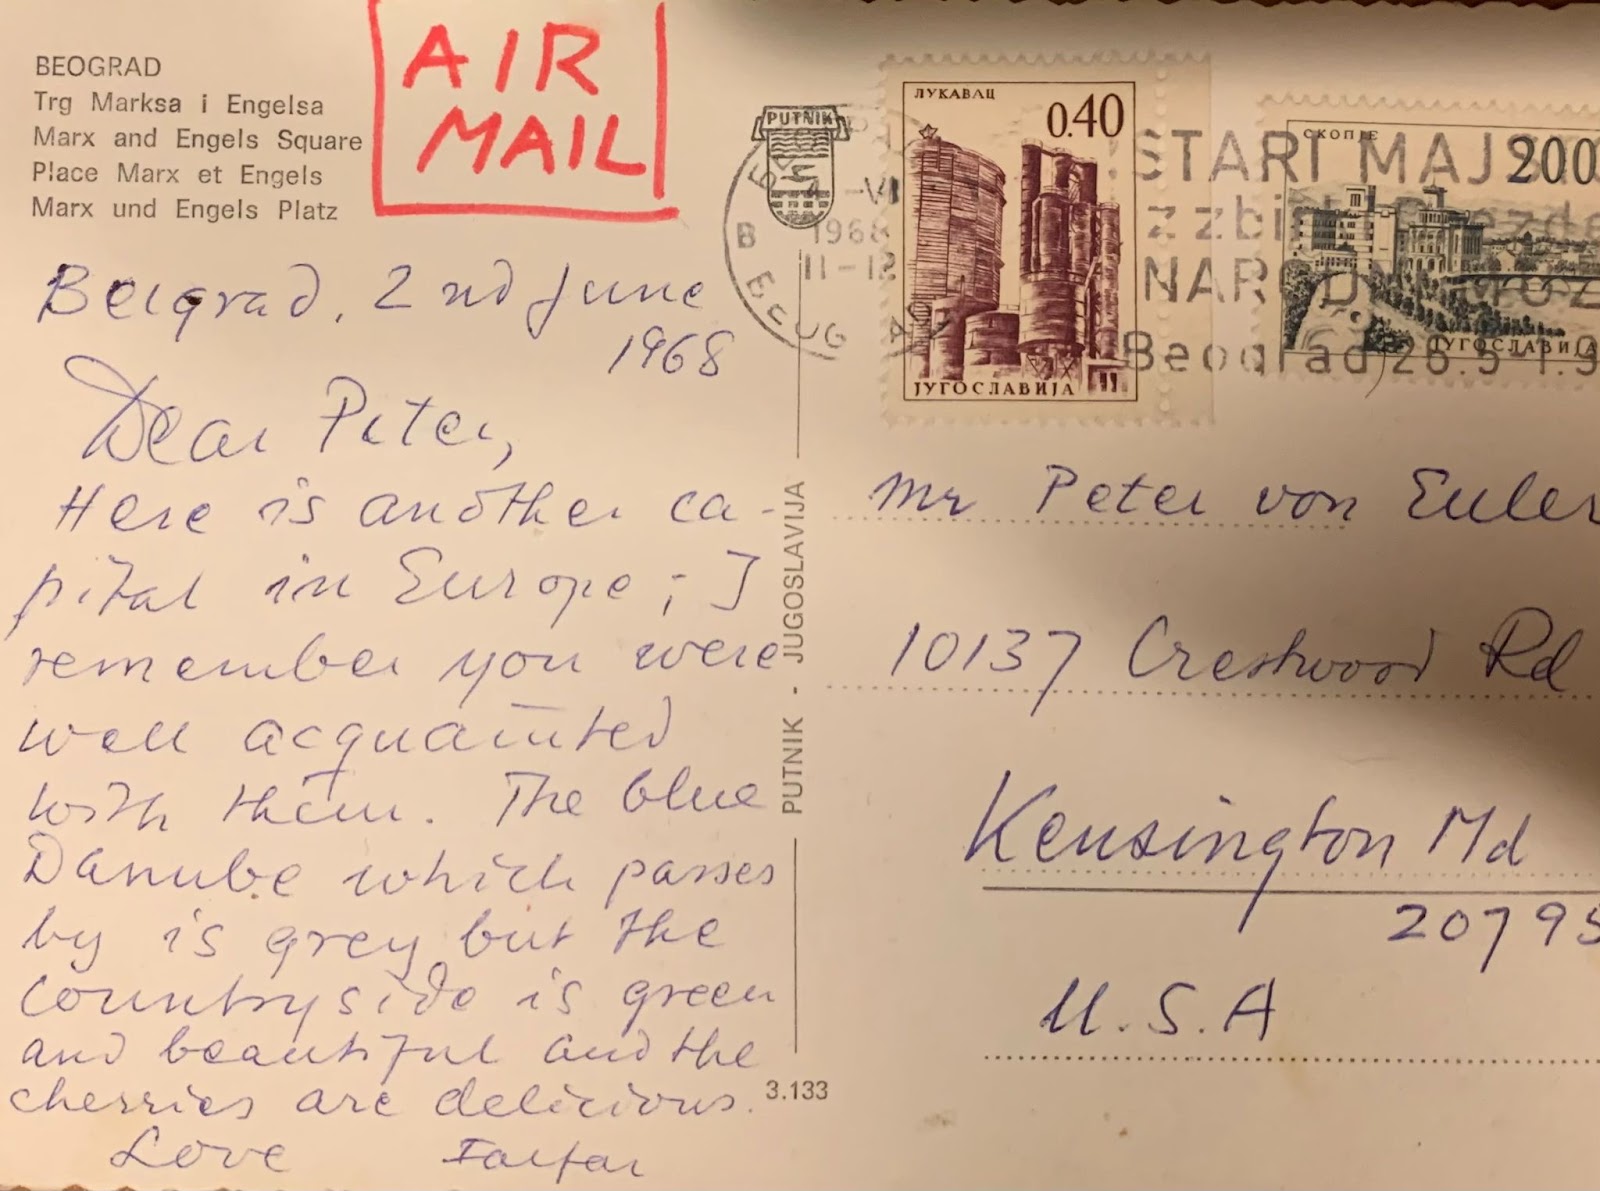 BEOGRAD
Trg Marksa i Engelsa
Marx and Engels Square
Place Marx et Engels
Marx und Engels Platz
AIR
MAIL
Belgrad, 2nd June
1968
Dear Peter,
Here is another ca-
pital in Europe; I
remember you were
well acquainted
with them. The blue
Danube which passes
by is grey but the
countryside is green
and beautiful and the
cherries are delicious.
Love Farfar
PUTNIK - JUGOSLAVIJA
3.133
PUTNIK
-VI
1968
11-12
BEOGRAD
ЛУКАВАЦ
0.40
ЈУГОСЛАВИЈА
СКОПЈЕ
200
ЈУГОСЛАВИЈА
STARI MAJS
NARODNI MUZ
Beograd
Mr Peter von Euler
10137 Crestwood Rd
Kensington Md
20795
U.S.A